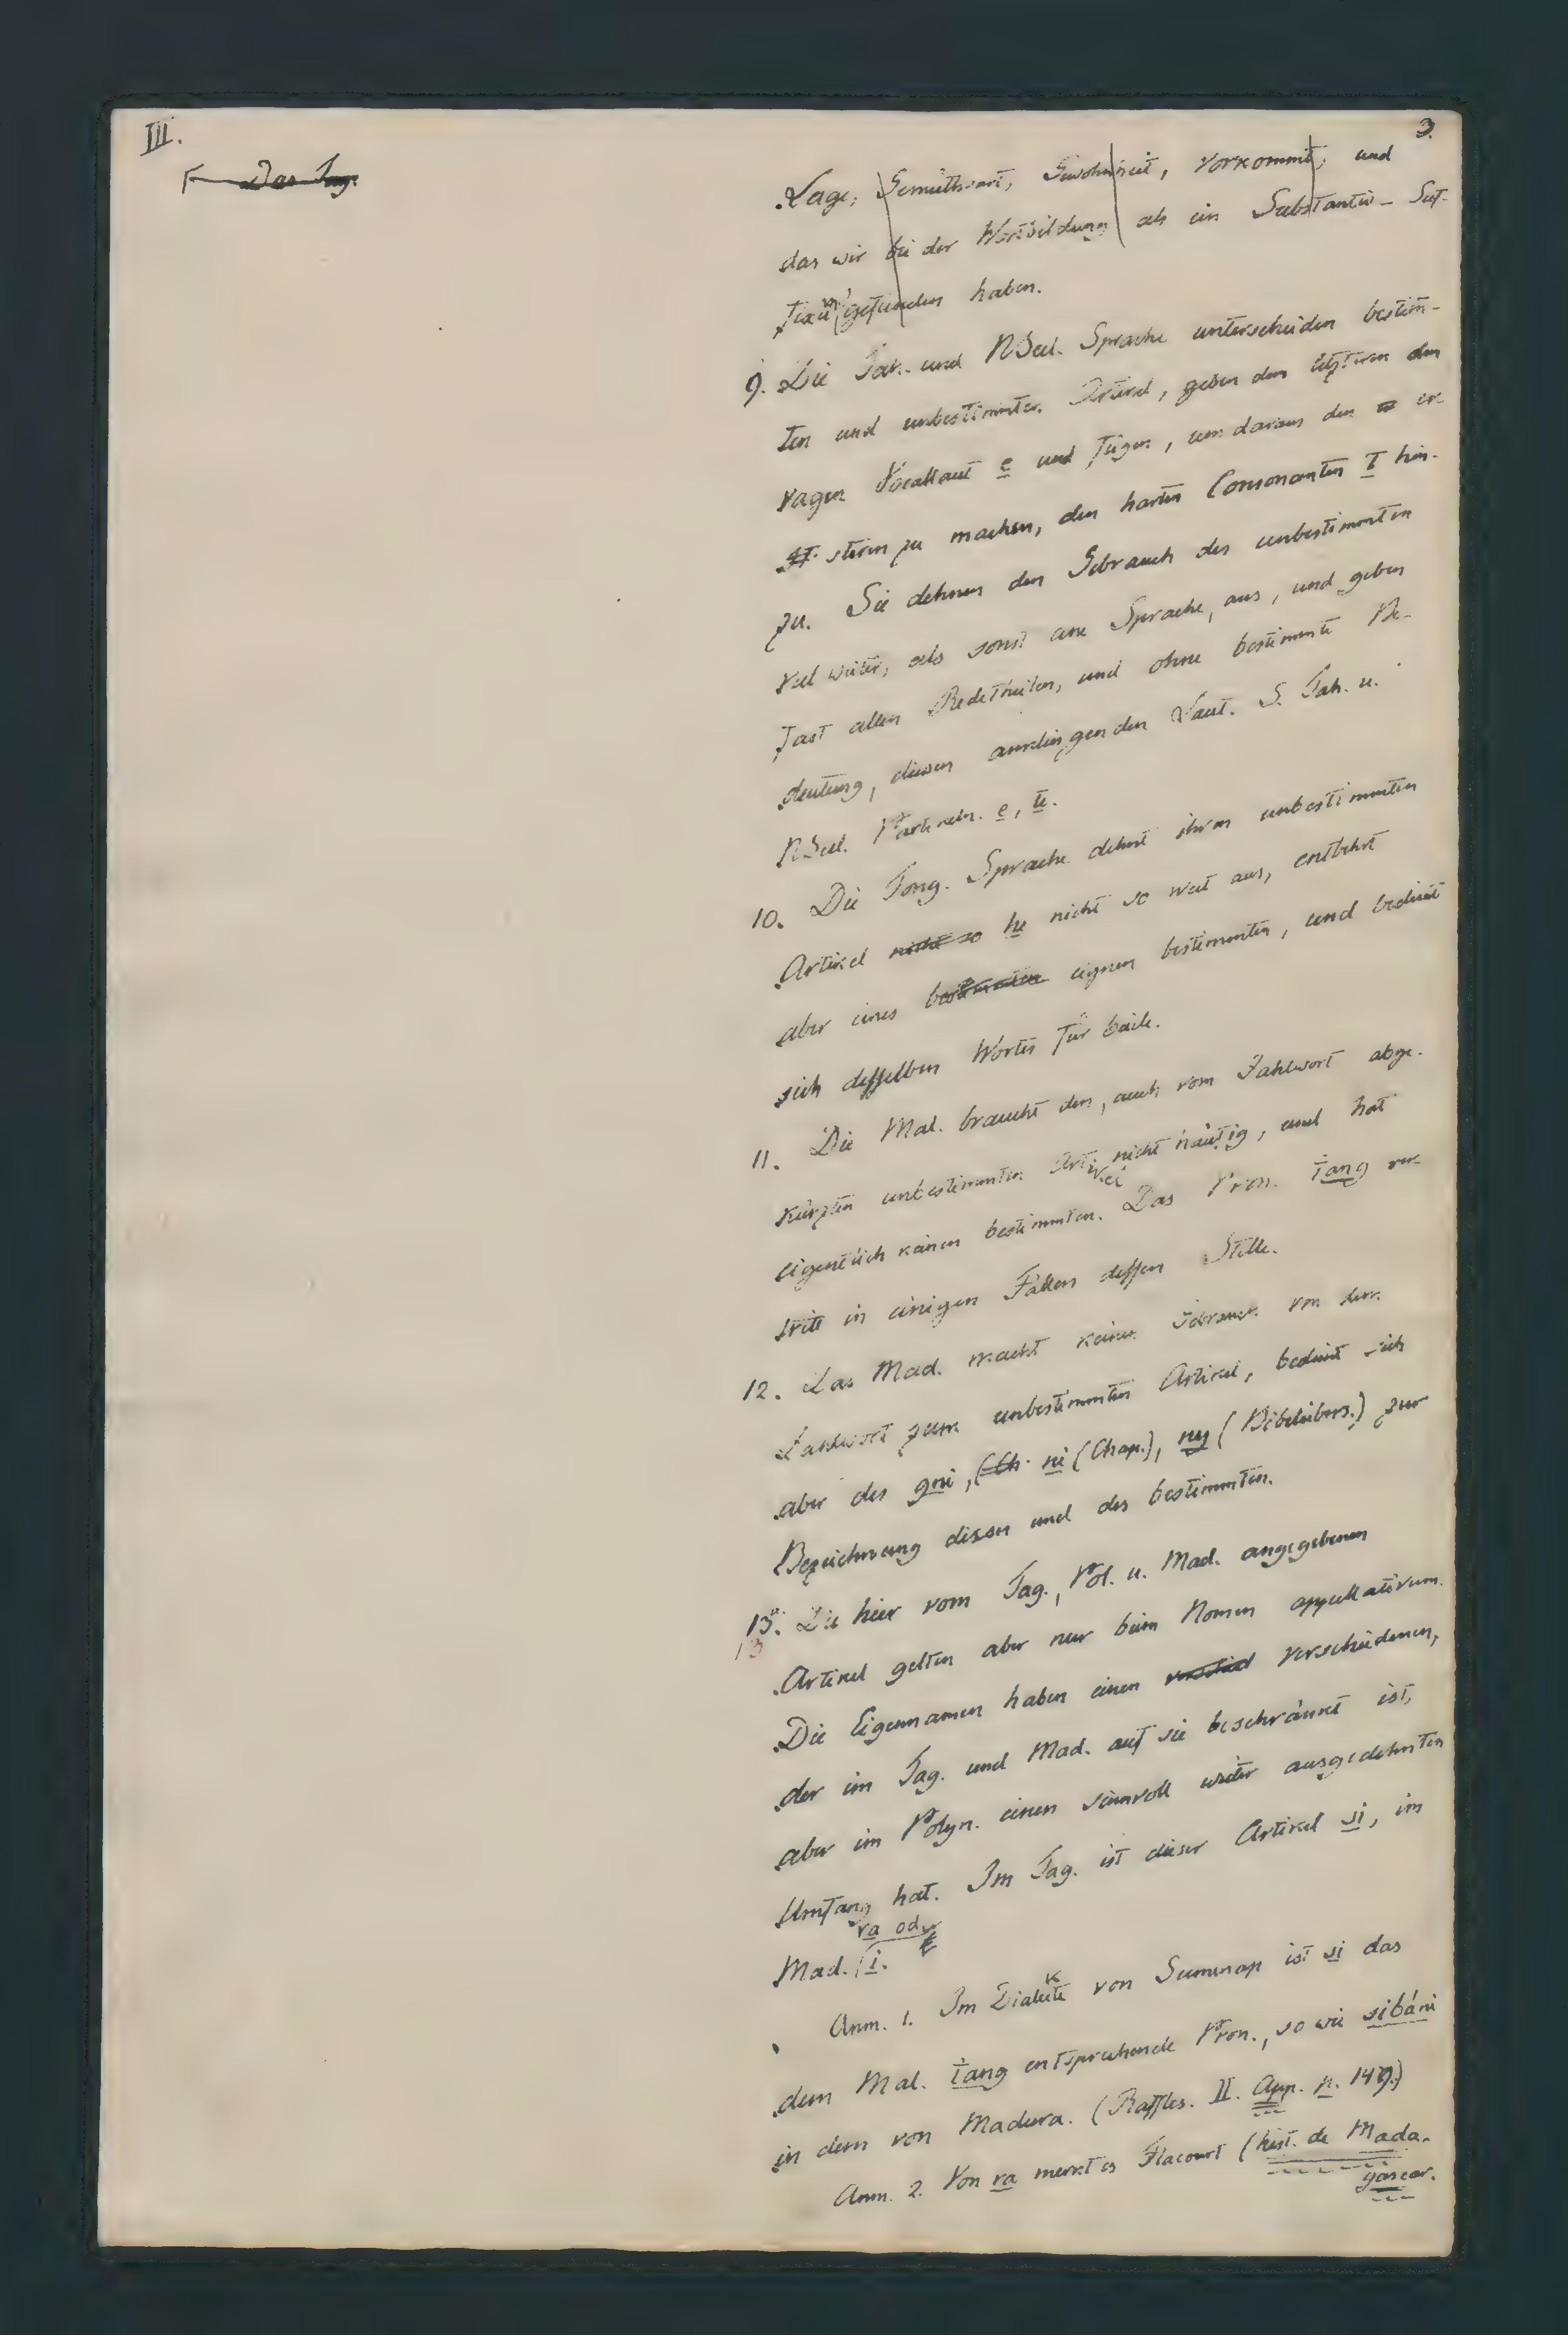 III.
3.
Das Tag.
Lage, Gemüthsart, Gewohnheit, vorkommt, und
das wir bei der Wortbildung als ein Substantiv-Suf-
fixum gefunden haben.
9. Die Tah. und NSeel. Sprache unterscheiden bestim̄-
ten und unbestimmten Artikel, geben dem letzteren den
vagen Vocallaut e und fügen, um daraus den er-
steren zu machen, den harten Consonanten t hin-
zu. Sie dehnen den Gebrauch des unbestimmten
viel weiter, als sonst eine Sprache, aus, und geben
fast allen Redetheilen, und ohne bestimmte Be-
deutung, diesen anklingenden Laut. S. Tah. u.
NSeel. Partikeln. e, te.
10. Die Tong. Sprache dehnt ihren unbestimmten
Artikel nicht so he nicht so weit aus, entbehrt
aber eines bestimmten eignen bestimmten, und bedient
sich desselben Wortes für beide.
11. Die Mal. braucht den, auch vom Zahlwort abge-
kürzten unbestimmten Artikel nicht häufig, und hat
eigentlich keinen bestimmten. Das Pron. îang ver-
tritt in einigen Fällen dessen Stelle.
12. Das Mad. macht keinen Gebrauch von dem
Zahlwort zum unbestimmten Artikel, bedient sich
aber des gni, (Ch. ni (Chap.), ny (Bibelübers.) zur
Bezeichnung dieses und des bestimmten.
13. Die hier vom Tag., Pol. u. Mad. angegebenen
13
Artikel gelten aber nur beim Nomen appellativum.
Die Eigennamen haben einen verschied verschiedenen,
der im Tag. und Mad. auf sie beschränkt ist,
aber im Polyn. einen sinnvoll weiter ausgedehnten
Umfang hat. Im Tag. ist dieser Artikel si, im
ra od.
Mad. i.
Anm. 1. Im Dialekte von Sumenap ist si das
dem Mal. îang entsprechende Pron., so wie sibáni
in dem von Madura. (Raffles. II. App. p. 149.)
Anm. 2. Von ra merkt es Flacourt (hist. de Mada-
gascar.